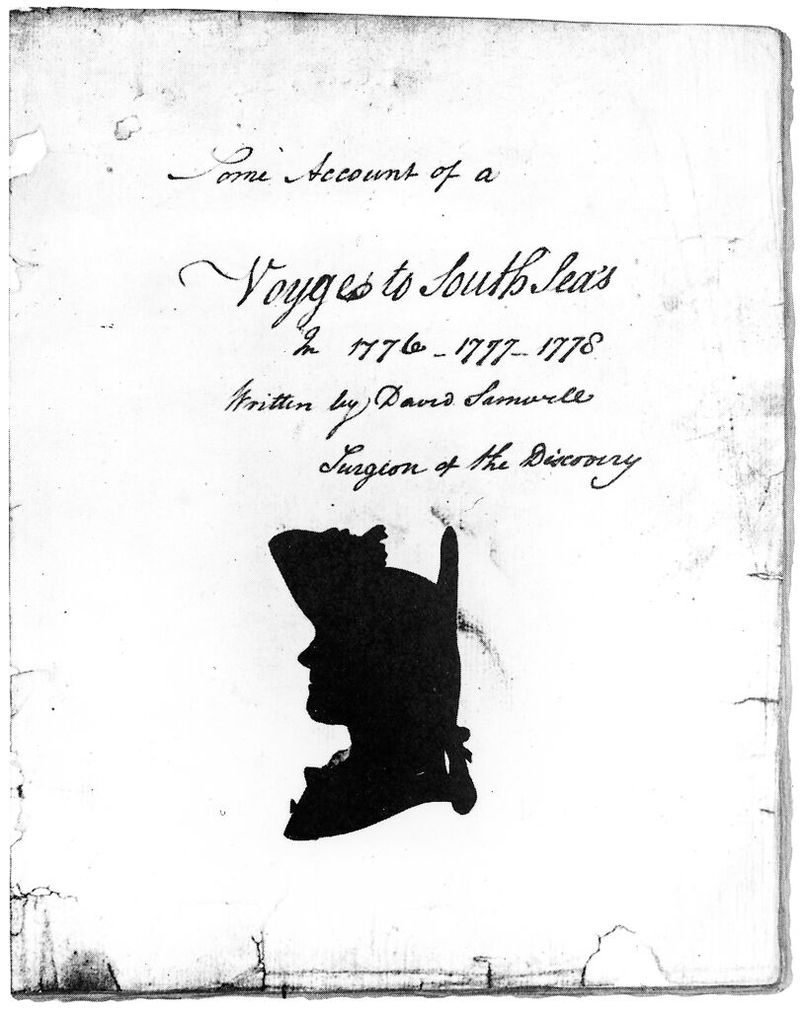 Some Account of a
Voyges to South Sea's
In 1776 - 1777 - 1778
Written by David Samwell
Surgeon of the Discovery